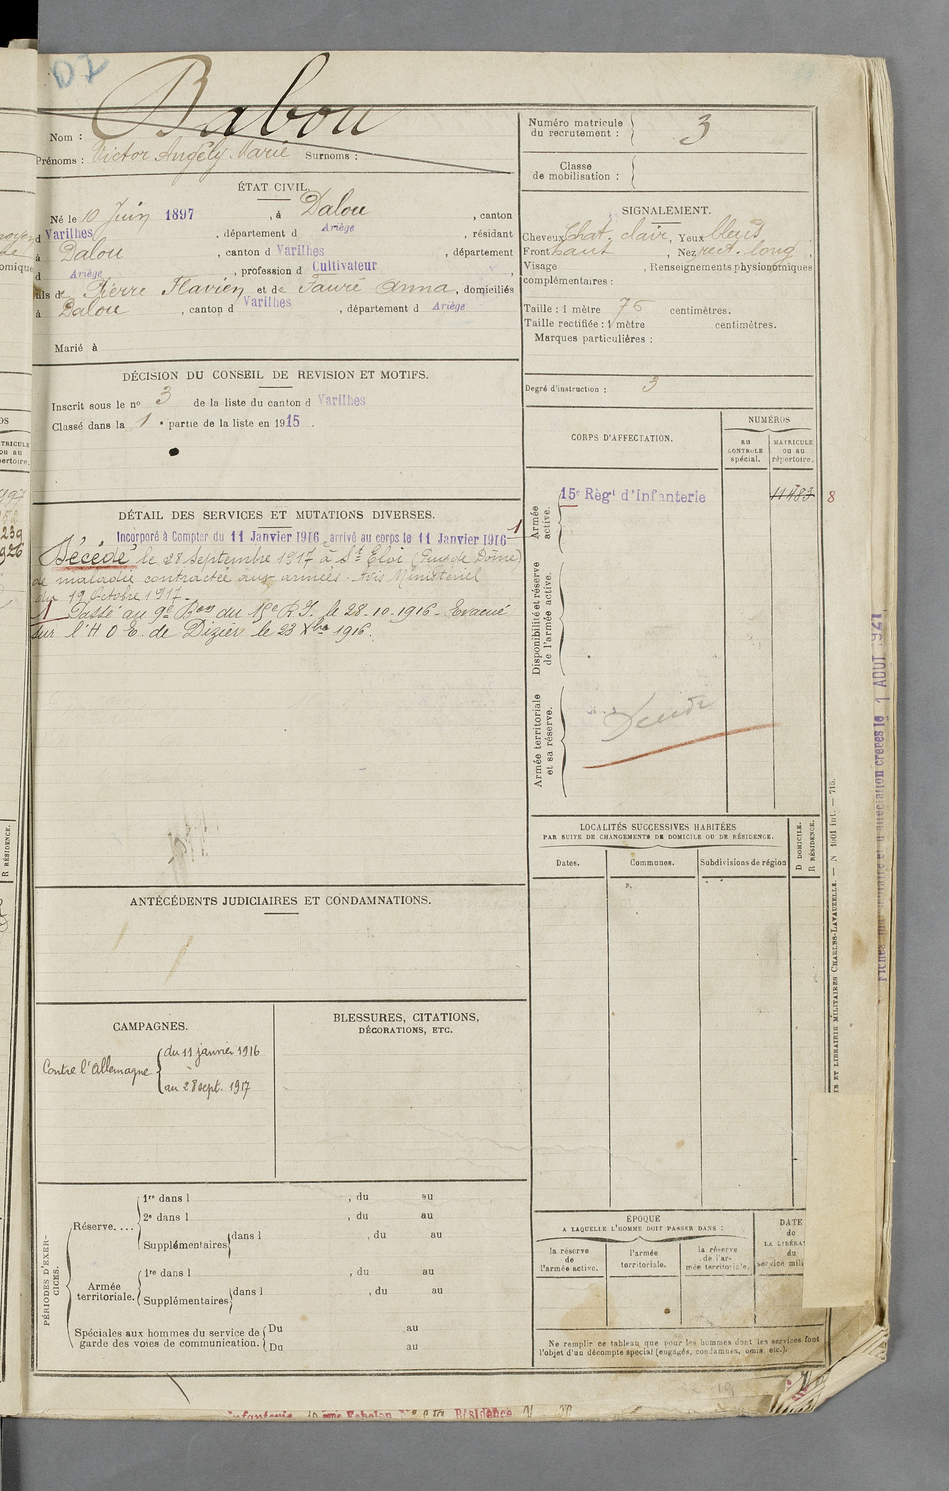 D2
Babou
Nom :
Prénoms : Victor Angély Marie Surnoms :
ÉTAT CIVIL.
Né le 10 Juin 1897, à Dalou, canton
d Varilhes, département d Ariège, résidant
à Dalou, canton d Varilhes, département
d Ariège, profession d Cultivateur,
fils de Pierre Flavien et de Faure Anna, domiciliés
à Dalou, canton d Varilhes, département d Ariège
Marié à
DÉCISION DU CONSEIL DE REVISION ET MOTIFS.
Inscrit sous le no 3 de la liste du canton d Varilhes
Classé dans la 1 e partie de la liste en 1915.
DÉTAIL DES SERVICES ET MUTATIONS DIVERSES.
Incorporé à Compter du 11 Janvier 1916, arrivé au corps le 11 Janvier 1916 1
Décédé le 28 Septembre 1917 à St Eloi (Puy de Dôme)
de maladie contractée aux armées. Avis Ministériel
du 19 Octobre 1917.
1 Passé au 9e Bon du 15e R.I. le 28.10.1916 - Evacué
sur l'H O E. de Dizier le 23 Xbre 1916.
ANTÉCÉDENTS JUDICIAIRES ET CONDAMNATIONS.
CAMPAGNES.
Contre l'Allemagne
du 11 janvier 1916
au 28 sept. 1917
BLESSURES, CITATIONS,
DÉCORATIONS, ETC.
PÉRIODES D'EXERCICES.
Réserve....
1re dans l , du au
2e dans l , du au
Supplémentaires dans l , du au
Armée
territoriale.
1re dans l , du au
Supplémentaires dans l , du au
Spéciales aux hommes du service de
garde des voies de communication.
Du au
Du au
Numéro matricule
du recrutement : 3
Classe
de mobilisation :
SIGNALEMENT.
Cheveux chat. clair, Yeux bleus
Front haut, Nez rect. long
Visage , Renseignements physionomiques
complémentaires :
Taille : 1 mètre 76 centimètres.
Taille rectifiée : 1 mètre centimètres.
Marques particulières :
Degré d'instruction : 3
CORPS D'AFFECTATION.
NUMÉROS
AU
CONTROLE
spécial.
MATRICULE
ou au
répertoire.
Armée
active.
15e Régt d'Infanterie 11483 8
Disponibilité et réserve
de l'armée active.
Armée territoriale
et sa réserve.
LOCALITÉS SUCCESSIVES HABITÉES
PAR SUITE DE CHANGEMENTS DE DOMICILE OU DE RÉSIDENCE.
Dates.
Communes.
Subdivisions de région
D DOMICILE.
R RÉSIDENCE.
ÉPOQUE
A LAQUELLE L'HOMME DOIT PASSER DANS :
la réserve
de
l'armée active.
l'armée
territoriale.
la réserve
de l'ar-
mée territoriale.
DATE
de
LA LIBÉRAT
du
service mili
Ne remplir ce tableau que pour les hommes dont les services font
l'objet d'un décompte spécial (engagés, condamnés, omis, etc.).
ET LIBRAIRIE MILITAIRES CHARLES-LAVAUZELLE. — N 1001 int. — 715.
créées le 1 AOUT 1921
Résidence